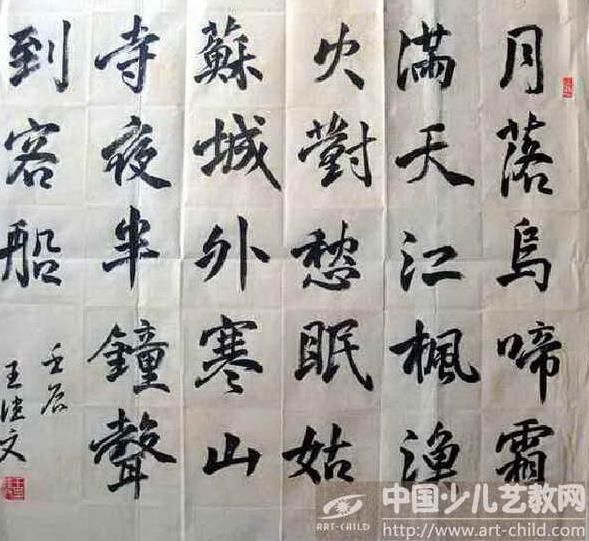 月落烏啼霜
滿天江楓漁
火對愁眠姑
蘇城外寒山
寺夜半鐘聲
到客船
壬辰
王建文
中国少儿艺教网
ART-CHILD
http://www.art-child.com